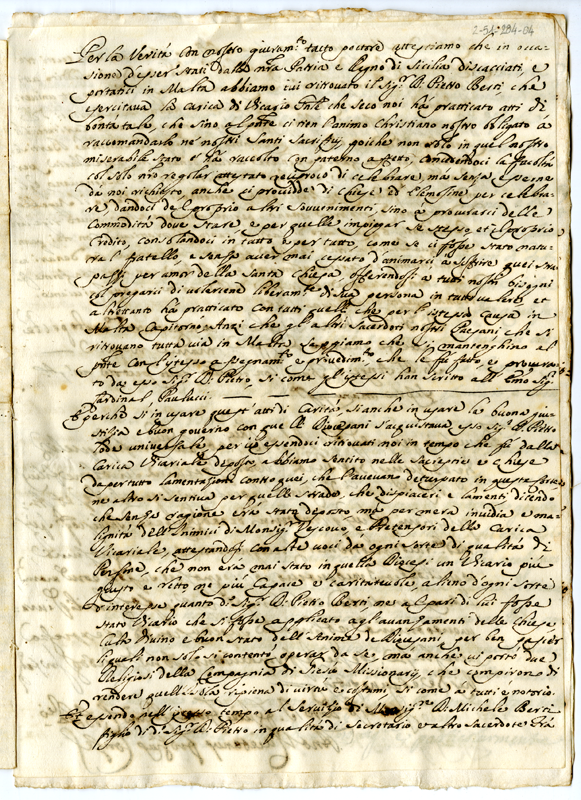 2-54-284-04
Per la Verità con nostro giuram.to tacto pectore attestiamo che in occa-
sione d'esser stati dalla n.ra Patria e Regno di Sicilia discacciati e
portatici in Malta abbiamo ivi ritrovato il Sig.r D. Pietro Berti, che
esercitava la Carica di Vicario che seco noi ha pratticato atti di
bontà tale, che sino al p.nte ci tien l'animo Christiano nostro obligato à
raccomandarlo ne nostri Santi Sacrificij poiche non solo in quel nostro
miserabile stato n'hà raccolto con paterno affetto, concedendoci la
col solo n.ro regolar attestato di celebrare, ma senza esserne
da noi richiesto anche ci provide di Chiese ed elemosine per celebra-
re, dandoci del proprio altri sovvenimenti, sino à procurarci delle
Commodità dove stare e per quelle impiegar se stesso et il proprio
Credito, consolandoci in tutto e per tutto, come se ci fosse stato natu-
ral fratello, e senza aver mai cessato d'animarci à soffrire quei
passi per amor della Santa Chiesa offerendosi a tutti nostri bisogni
col pregarci di valercene liberam.te di sua persona in tutto valere et
altrettanto hà pratticato con tutti quelli che per l'istessa causa in
Malta capitorno. Anzi che gl'altri Sacerdoti nostri Paesani che si
ritrovano tutta via in Malta sappiamo che si mantenghino al
p.nte con l'istesso assegnam.to e provedim.to che le fù fatto e procura-
to da esso Sig.r D. Pietro, si come gl'istessi han scritto all'Em.o Sig.r
Cardinal Paulucci.
E perche si in usare quest'atti di Carità, si anche in usare la buona giu-
stizia e buon governo con quelli Diocesani s'acquistava esso Sig.r D. Pietro
lode universale, per cio essendoci ritrovati noi in tempo che fù dalla
Carica Vicariale deposto abbiamo sentito nelle Sacrestie e Chiese
da per tutto lamentazioni contro quei, che l'avevano deturpato in
ne altro si sentiva per quelle strade, che dispiaceri e lamenti dicendo
che senza ragione era stato deposto ma per mera invidia e ma-
lignità dell'Inimici di Monsig.r Vescovo e Pretensori della Carica
Vicariale, attestandosi con alte voci da ogni sorte di qualità di
Persone, che non era mai stato in quella Diocesi un Vicario più
giusto e retto ne più capace e caritatevole, alieno d'ogni sorte
d'interesse quanto d.o Sig.r D. Pietro Berti ne al pari di lui fosse
stato Vicario che si fosse applicato agl'avanzamenti delle Chiese
Culto divino e buon stato dell'Anime de Diocesani, per ben
li quali non solo si contentò operar da se, ma anche vi portò due
Religiosi della Compagnia di Giesù Missionarij, che compirono di
rendere quell'Isola ripiena di virtù e costumi, si come a tutti è notorio.
Et essendo nell'istesso tempo al Servizio di Monsig.re D. Michele Berti
figlio di d.o Sig.r D. Pietro in qualità di Secretario et altro Sacerdote Frà